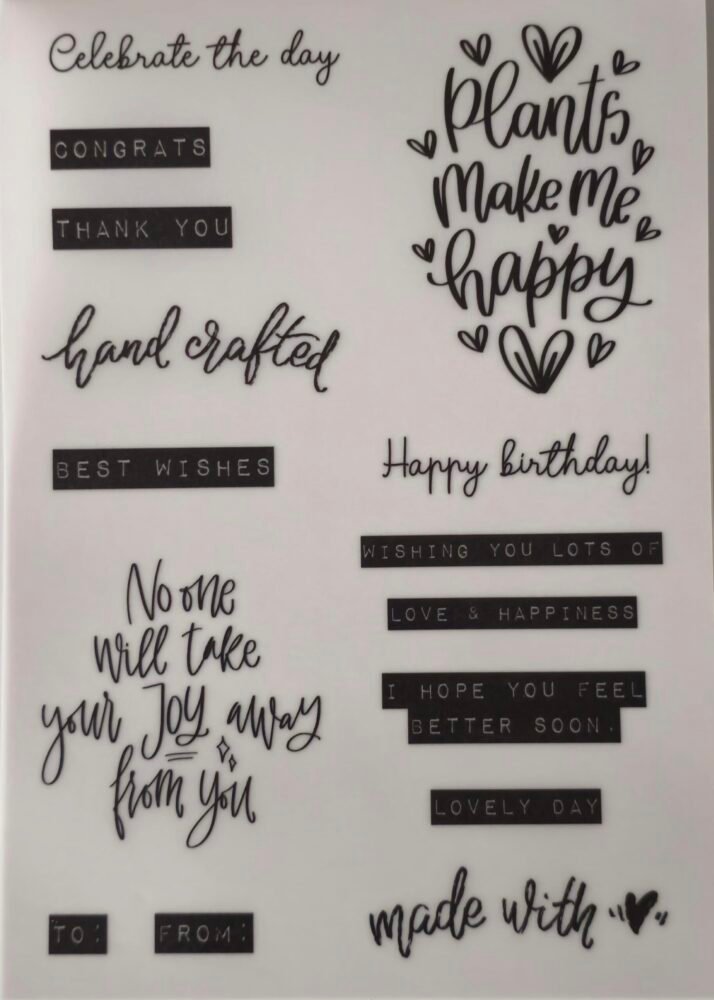 Celebrate the day
CONGRATS
THANK YOU
hand crafted
BEST WISHES
No one
will take
your Joy away
from you
TO:
FROM:
plants
make me
happy
Happy birthday!
WISHING YOU LOTS OF
LOVE & HAPPINESS
I HOPE YOU FEEL
BETTER SOON.
LOVELY DAY
made with